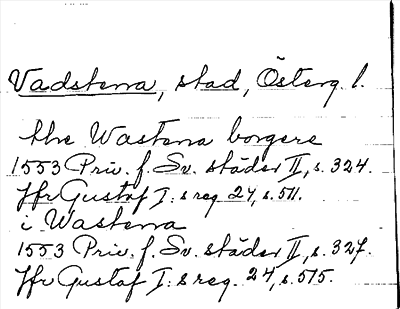 Vadstena, stad, Österg. l.
the Wastena borgere
1553 Priv. f. Sv. städer II, s. 324.
Jfr Gustaf I:s reg. 24, s. 511.
i Wastena
1553 Priv. f. Sv. städer II, s. 327.
Jfr Gustaf I:s reg. 24, s. 515.